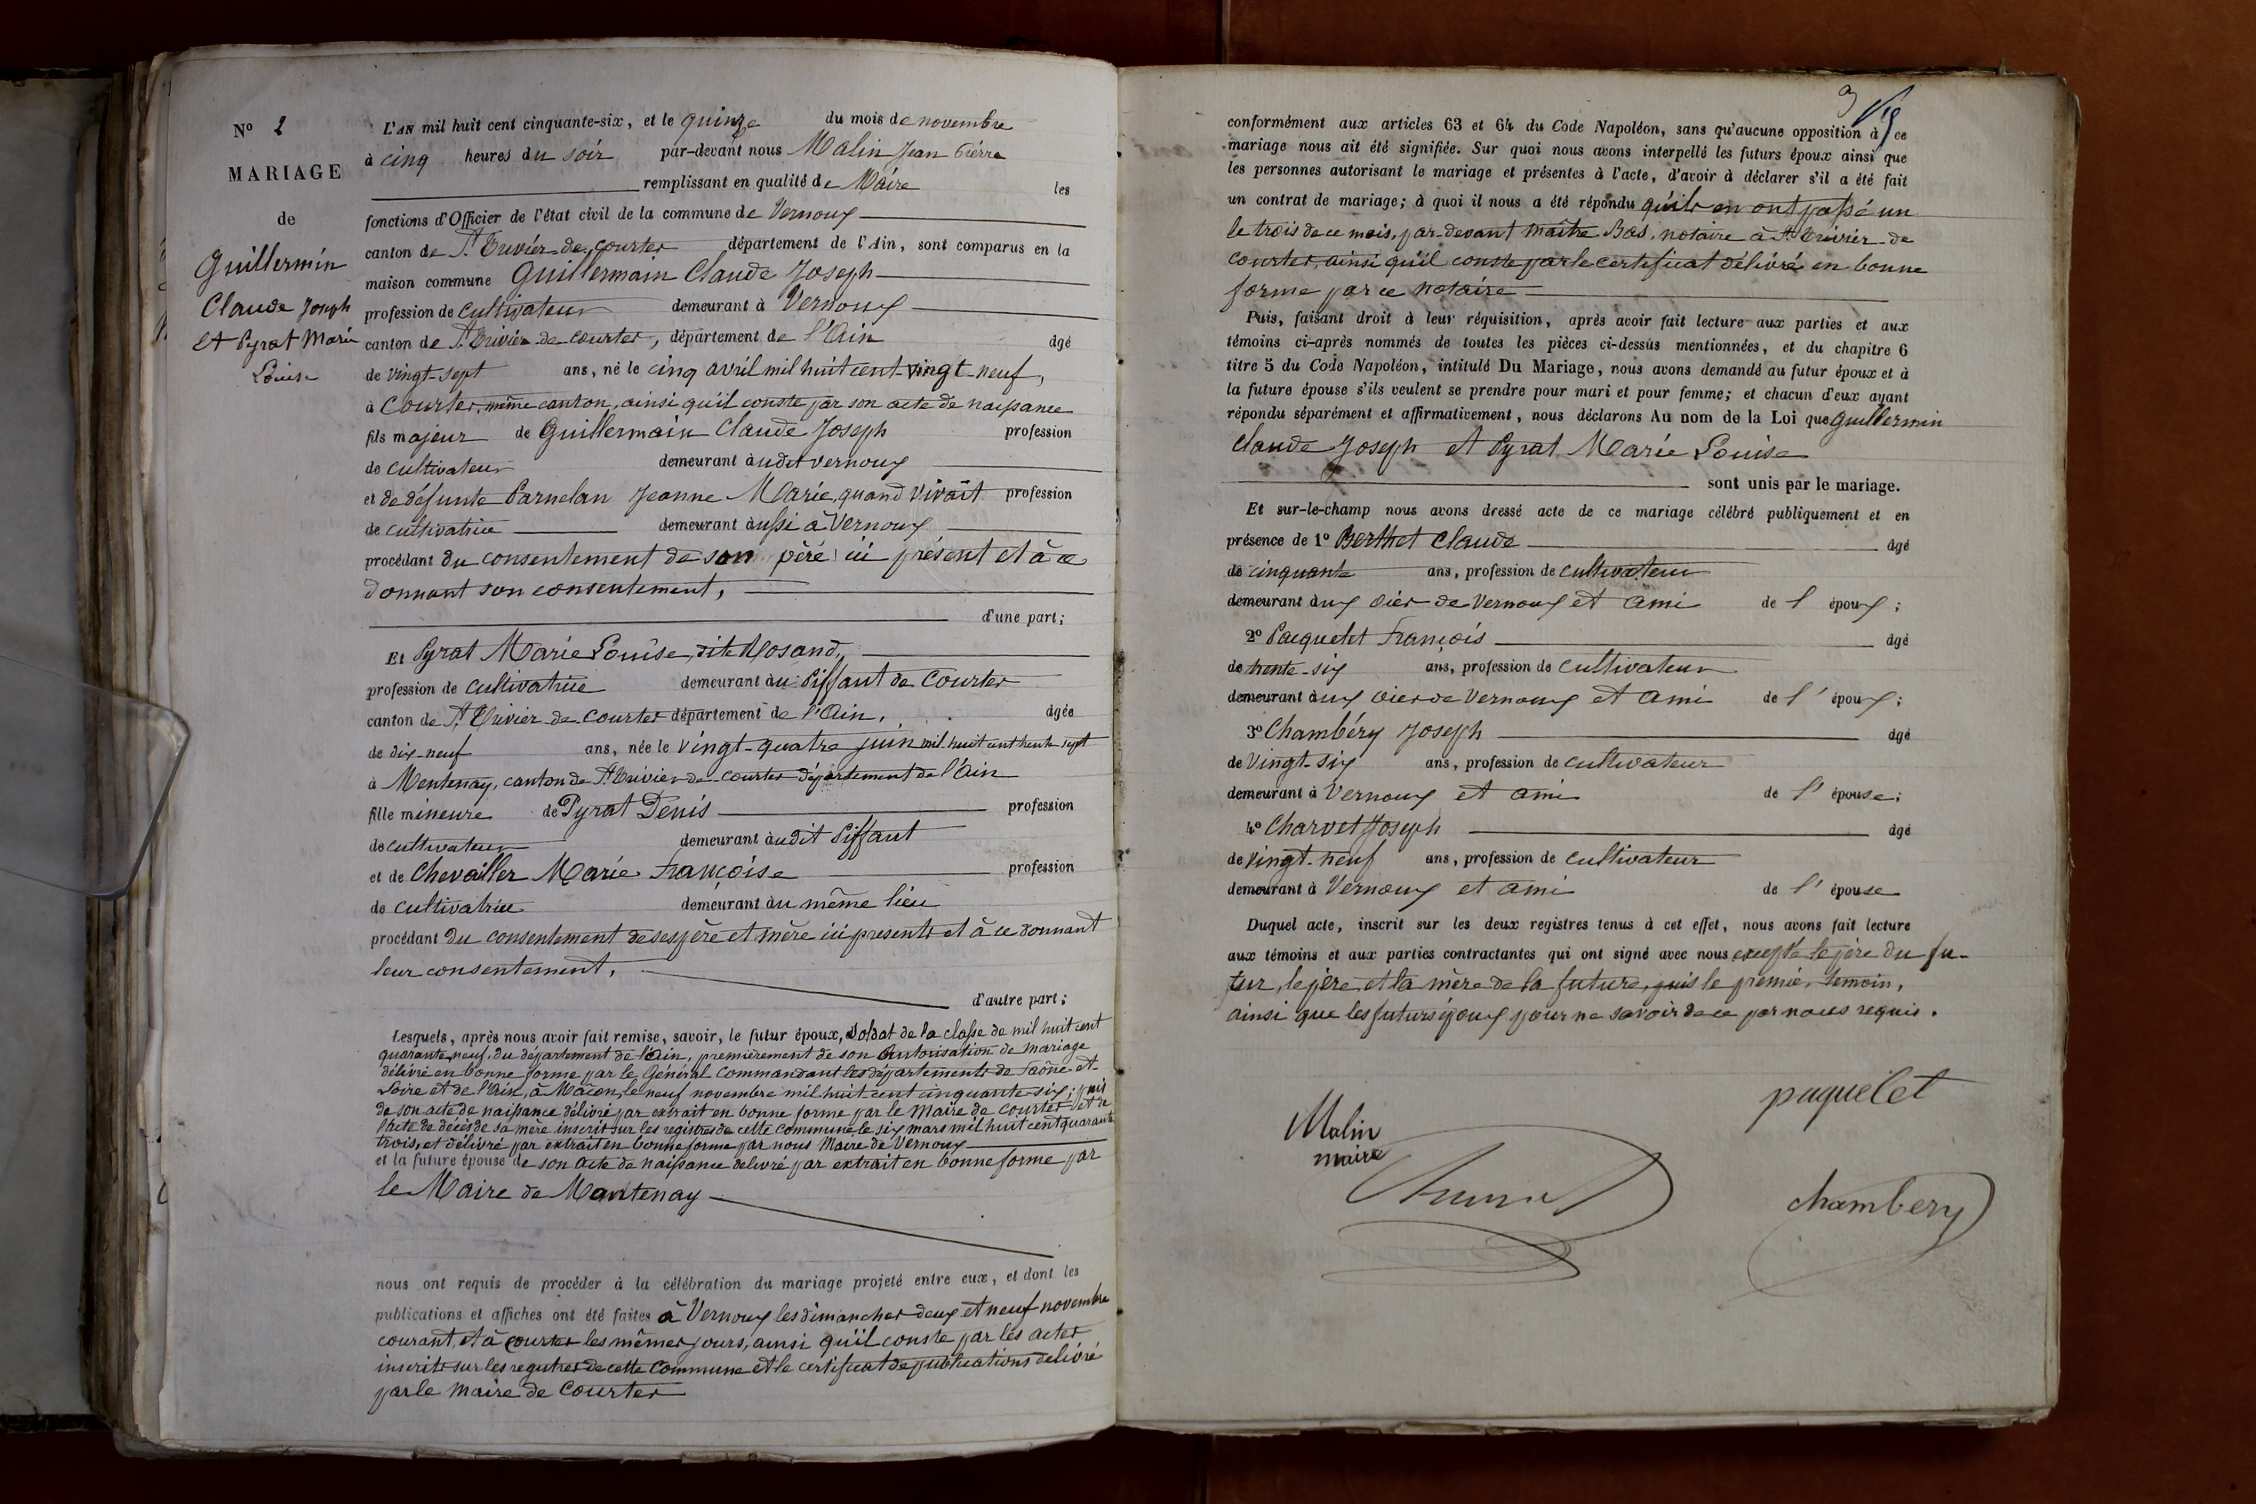 N° 2
MARIAGE
de
Guillermin
Claude Joseph
et Pyrat Marie
Louise
L'AN mil huit cent cinquante-six, et le quinze du mois de novembre
à cinq heures du soir par-devant nous Malin Jean Pierre
remplissant en qualité de Maire les
fonctions d'Officier de l'état civil de la commune de Vernoux
canton de St. Trivier-de-courtes département de l'Ain, sont comparus en la
maison commune Guillermain Claude Joseph
profession de cultivateur demeurant à Vernoux
canton de St. Trivier-de-courtes, département de l'Ain âgé
de vingt-sept ans, né le cinq avril mil huit cent-vingt-neuf,
à Courtes, même canton, ainsi qu'il conste par son acte de naissance
fils majeur de Guillermain Claude Joseph profession
de cultivateur demeurant audit vernoux
et de défunte Parnelan Jeanne Marie, quand vivait profession
de cultivatrice demeurant aussi à Vernoux
procédant du consentement de son père ici présent et à ce
donnant son consentement,
d'une part;
Et Pyrat Marie Louise, dite
profession de cultivatrice demeurant au Piffaut de Courtes
canton de St. Trivier-de-courtes département de l'Ain, âgée
de dix-neuf ans, née le vingt-quatre juin mil huit cent trente sept
à Mentenay, canton de St. Trivier-de-courtes département de l'Ain
fille mineure de Pyrat Denis profession
de cultivateur demeurant audit Piffaut
et de Chevailler Marie Françoise profession
de cultivatrice demeurant au même lieu
procédant du consentement de ses père et mère ici presents et à ce donnant
leur consentement,
d'autre part;
Lesquels, après nous avoir fait remise, savoir, le futur époux, Soldat de la classe de mil huit cent
quarante neuf, du département de l'Ain, premièrement de son Autorisation de mariage
délivré en bonne forme par le Général Commandant les départements de Saône et
Loire et de l'Ain, à Mâcon, le neuf novembre mil huit cent cinquante-six; puis
de son acte de naissance délivré par extrait en bonne forme par le Maire de Courtes et de
l'acte de décès de sa mère inscrit sur les registres de cette Commune le six mars mil huit cent quarante
trois, et délivré par extrait en bonne forme par nous Maire de Vernoux
et la future épouse de son acte de naissance delivré par extrait en bonne forme par
le Maire de Mantenay
nous ont requis de procéder à la célébration du mariage projeté entre eux, et dont les
publications et affiches ont été faites à Vernoux les dimanches deux et neuf novembre
courant, et à courtes les mêmes jours, ainsi qu'il conste par les actes
inscrits sur les registres de cette Commune et le certificat de publications delivré
par le Maire de Courtes
3
conformément aux articles 63 et 64 du Code Napoléon, sans qu'aucune opposition à ce
mariage nous ait été signifiée. Sur quoi nous avons interpellé les futurs époux ainsi que
les personnes autorisant le mariage et présentes à l'acte, d'avoir à déclarer s'il a été fait
un contrat de mariage; à quoi il nous a été répondu qu'ils en ont passé un
le trois de ce mois, par-devant maître Bas, notaire à St. Trivier-de
courtes, ainsi qu'il conste par le certificat délivré en bonne
forme par ce notaire
Puis, faisant droit à leur réquisition, après avoir fait lecture aux parties et aux
témoins ci-après nommés de toutes les pièces ci-dessus mentionnées, et du chapitre 6
titre 5 du Code Napoléon, intitulé Du Mariage, nous avons demandé au futur époux et à
la future épouse s'ils veulent se prendre pour mari et pour femme; et chacun d'eux ayant
répondu séparément et affirmativement, nous déclarons Au nom de la Loi que guillermin
Claude Joseph et Pyrat Marie Louise
sont unis par le mariage.
Et sur-le-champ nous avons dressé acte de ce mariage célébré publiquement et en
présence de 1° Berthet Claude âgé
de cinquante ans, profession de cultivateur
demeurant aux de Vernoux et ami de l' époux;
2° Pacquelet François âgé
de trente-six ans, profession de cultivateur
demeurant aux de Vernoux et ami de l' époux;
3° Chambéry Joseph âgé
de vingt-six ans, profession de cultivateur
demeurant à Vernoux et ami de l' épouse;
4° Charvet Joseph âgé
de vingt-neuf ans, profession de cultivateur
demeurant à Vernoux et ami de l' épouse
Duquel acte, inscrit sur les deux registres tenus à cet effet, nous avons fait lecture
aux témoins et aux parties contractantes qui ont signé avec nous excepté le père du fu-
tur, le père et la mère de la future, puis le premier temoin,
ainsi que les futurs époux pour ne savoir de ce par nous requis.
paquelet
Malin
maire
chambery